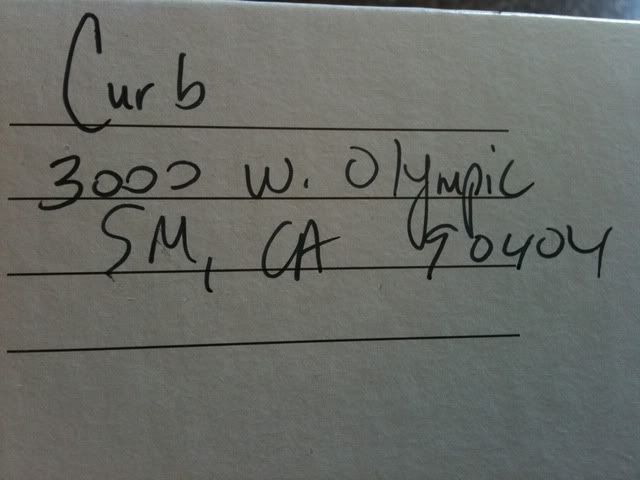 Curb
3000 W. Olympic
SM, CA 90404